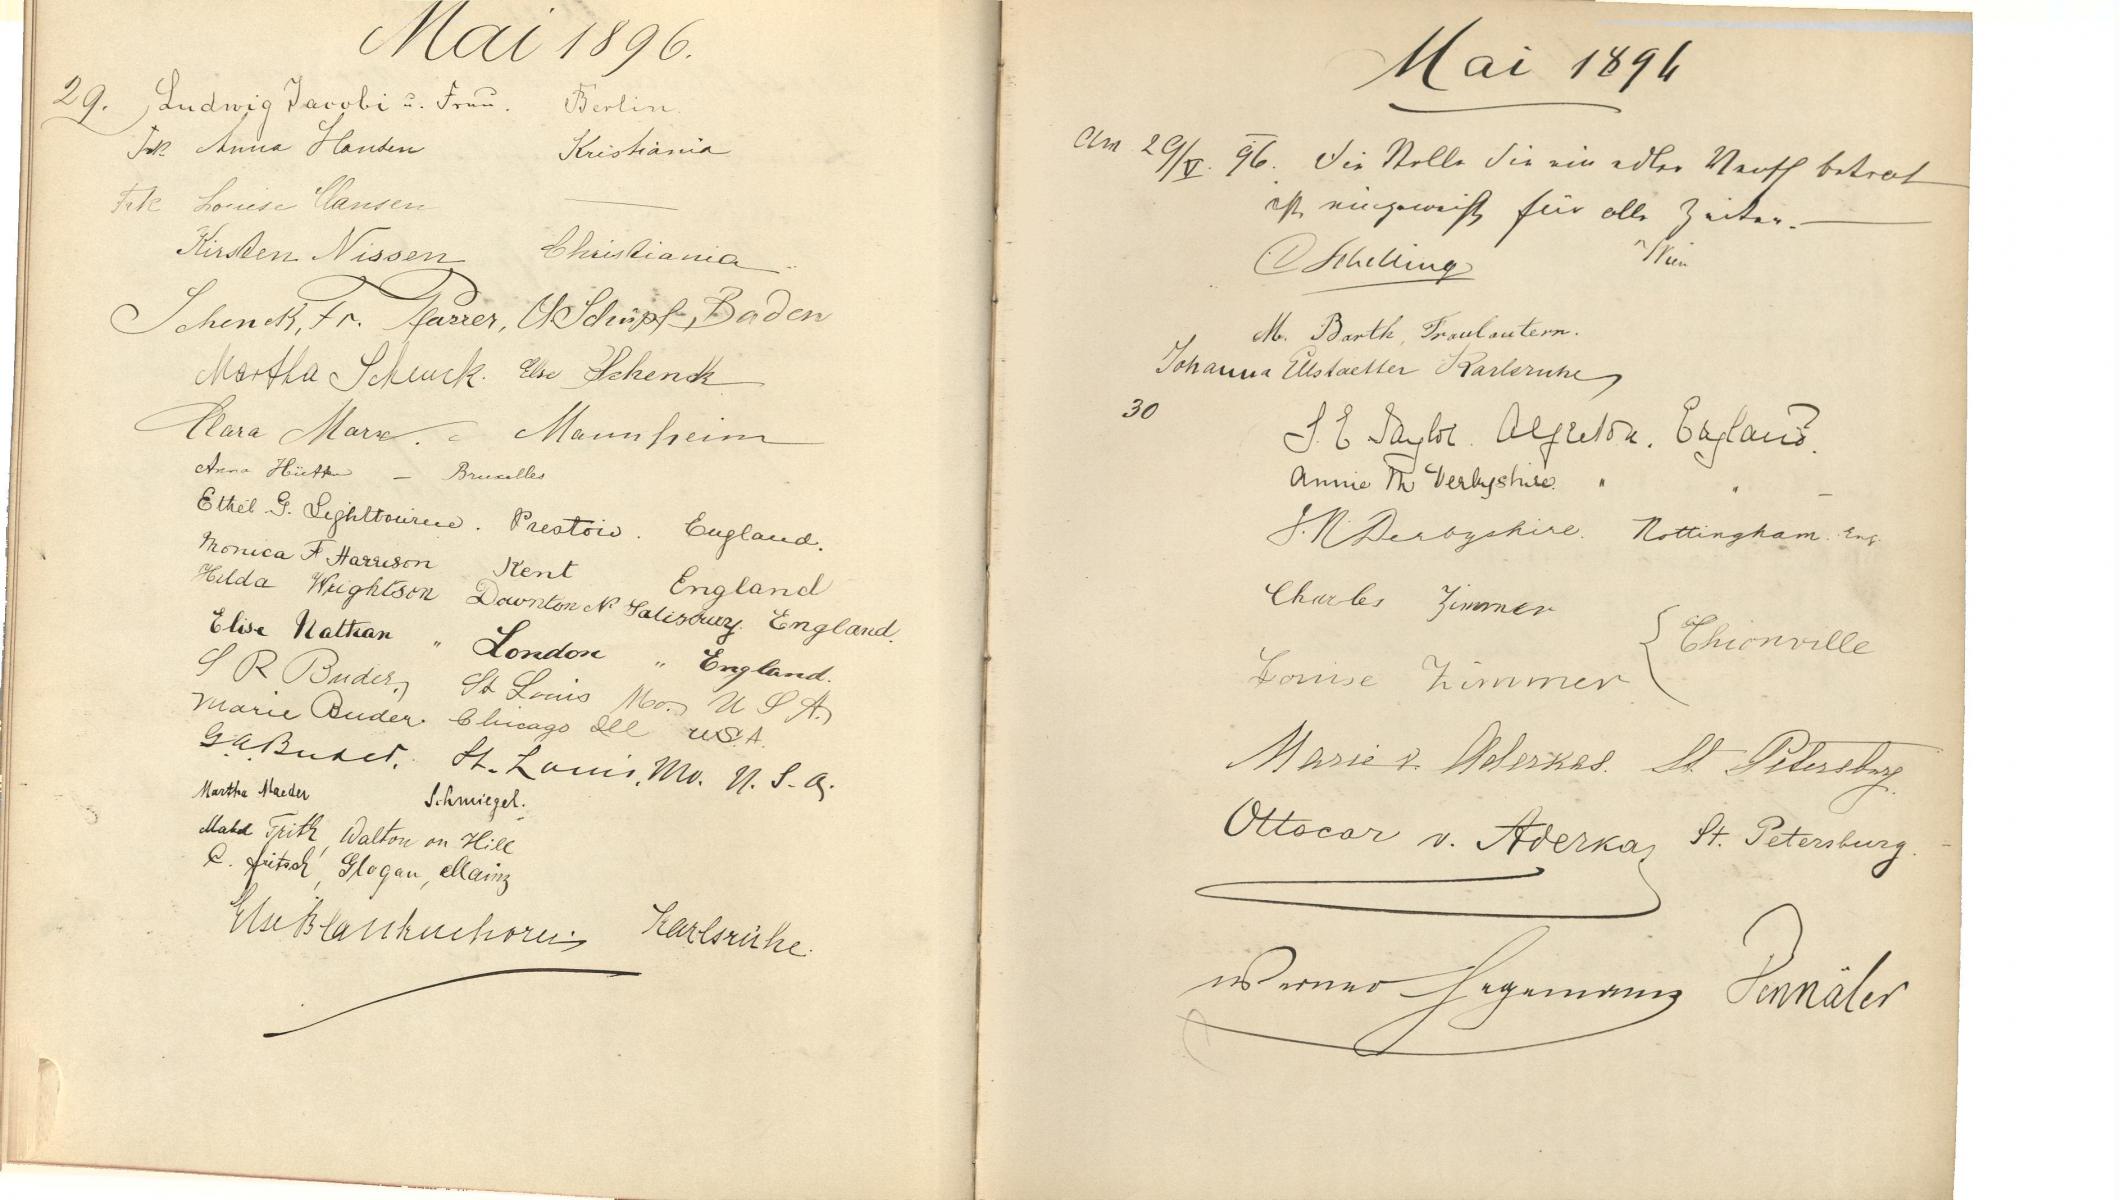 Mai 1896.
29. Ludwig Jacobi u. Frau. Berlin.
Frk. Anna Hansen Kristiania
Frk Louise Hansen ———
Kirsten Nissen Christiania.
Schenck, Fr. Pfarrer, Schüpf, Baden
Martha Schenck. Else Schenck
Clara Marx. Mannheim
Anna — Bruxelles
Ethel G. Lightbourne. Preston. England.
Monica F. Harrison Kent England
Hilda Wrightson Downton Nr Salisbury. England.
Elise Nathan " London " England.
S R Buder, St Louis Mo. U S A.
Marie Buder. Chicago Ill U.S.A.
G.A. Buder. St. Louis, Mo. U. S. A.
Martha Maeder Schmiegel.
Mabd Frith, Walton on Hill
C. Fritsch, Glogau, Mainz
Else Blankenhorn Karlsruhe.
Mai 1896
Am 29/V. 96. Die Stelle die ein edler Mensch betrat
ist eingeweiht für alle Zeiten. —
Schelling Wien
M. Barth, Fraulautern.
Johanna Ettstaetter Karlsruhe
30 S. E Taylor. Alfreton. England.
Annie M Derbyshire. " " —
J. N. Derbyshire. Nottingham. Eng.
Charles Zimmer
Thionville
Louise Zimmer
Marie v. Aderkas. St. Petersburg.
Ottocar v. Aderkas St. Petersburg.
Werner Hegemann Pennäler